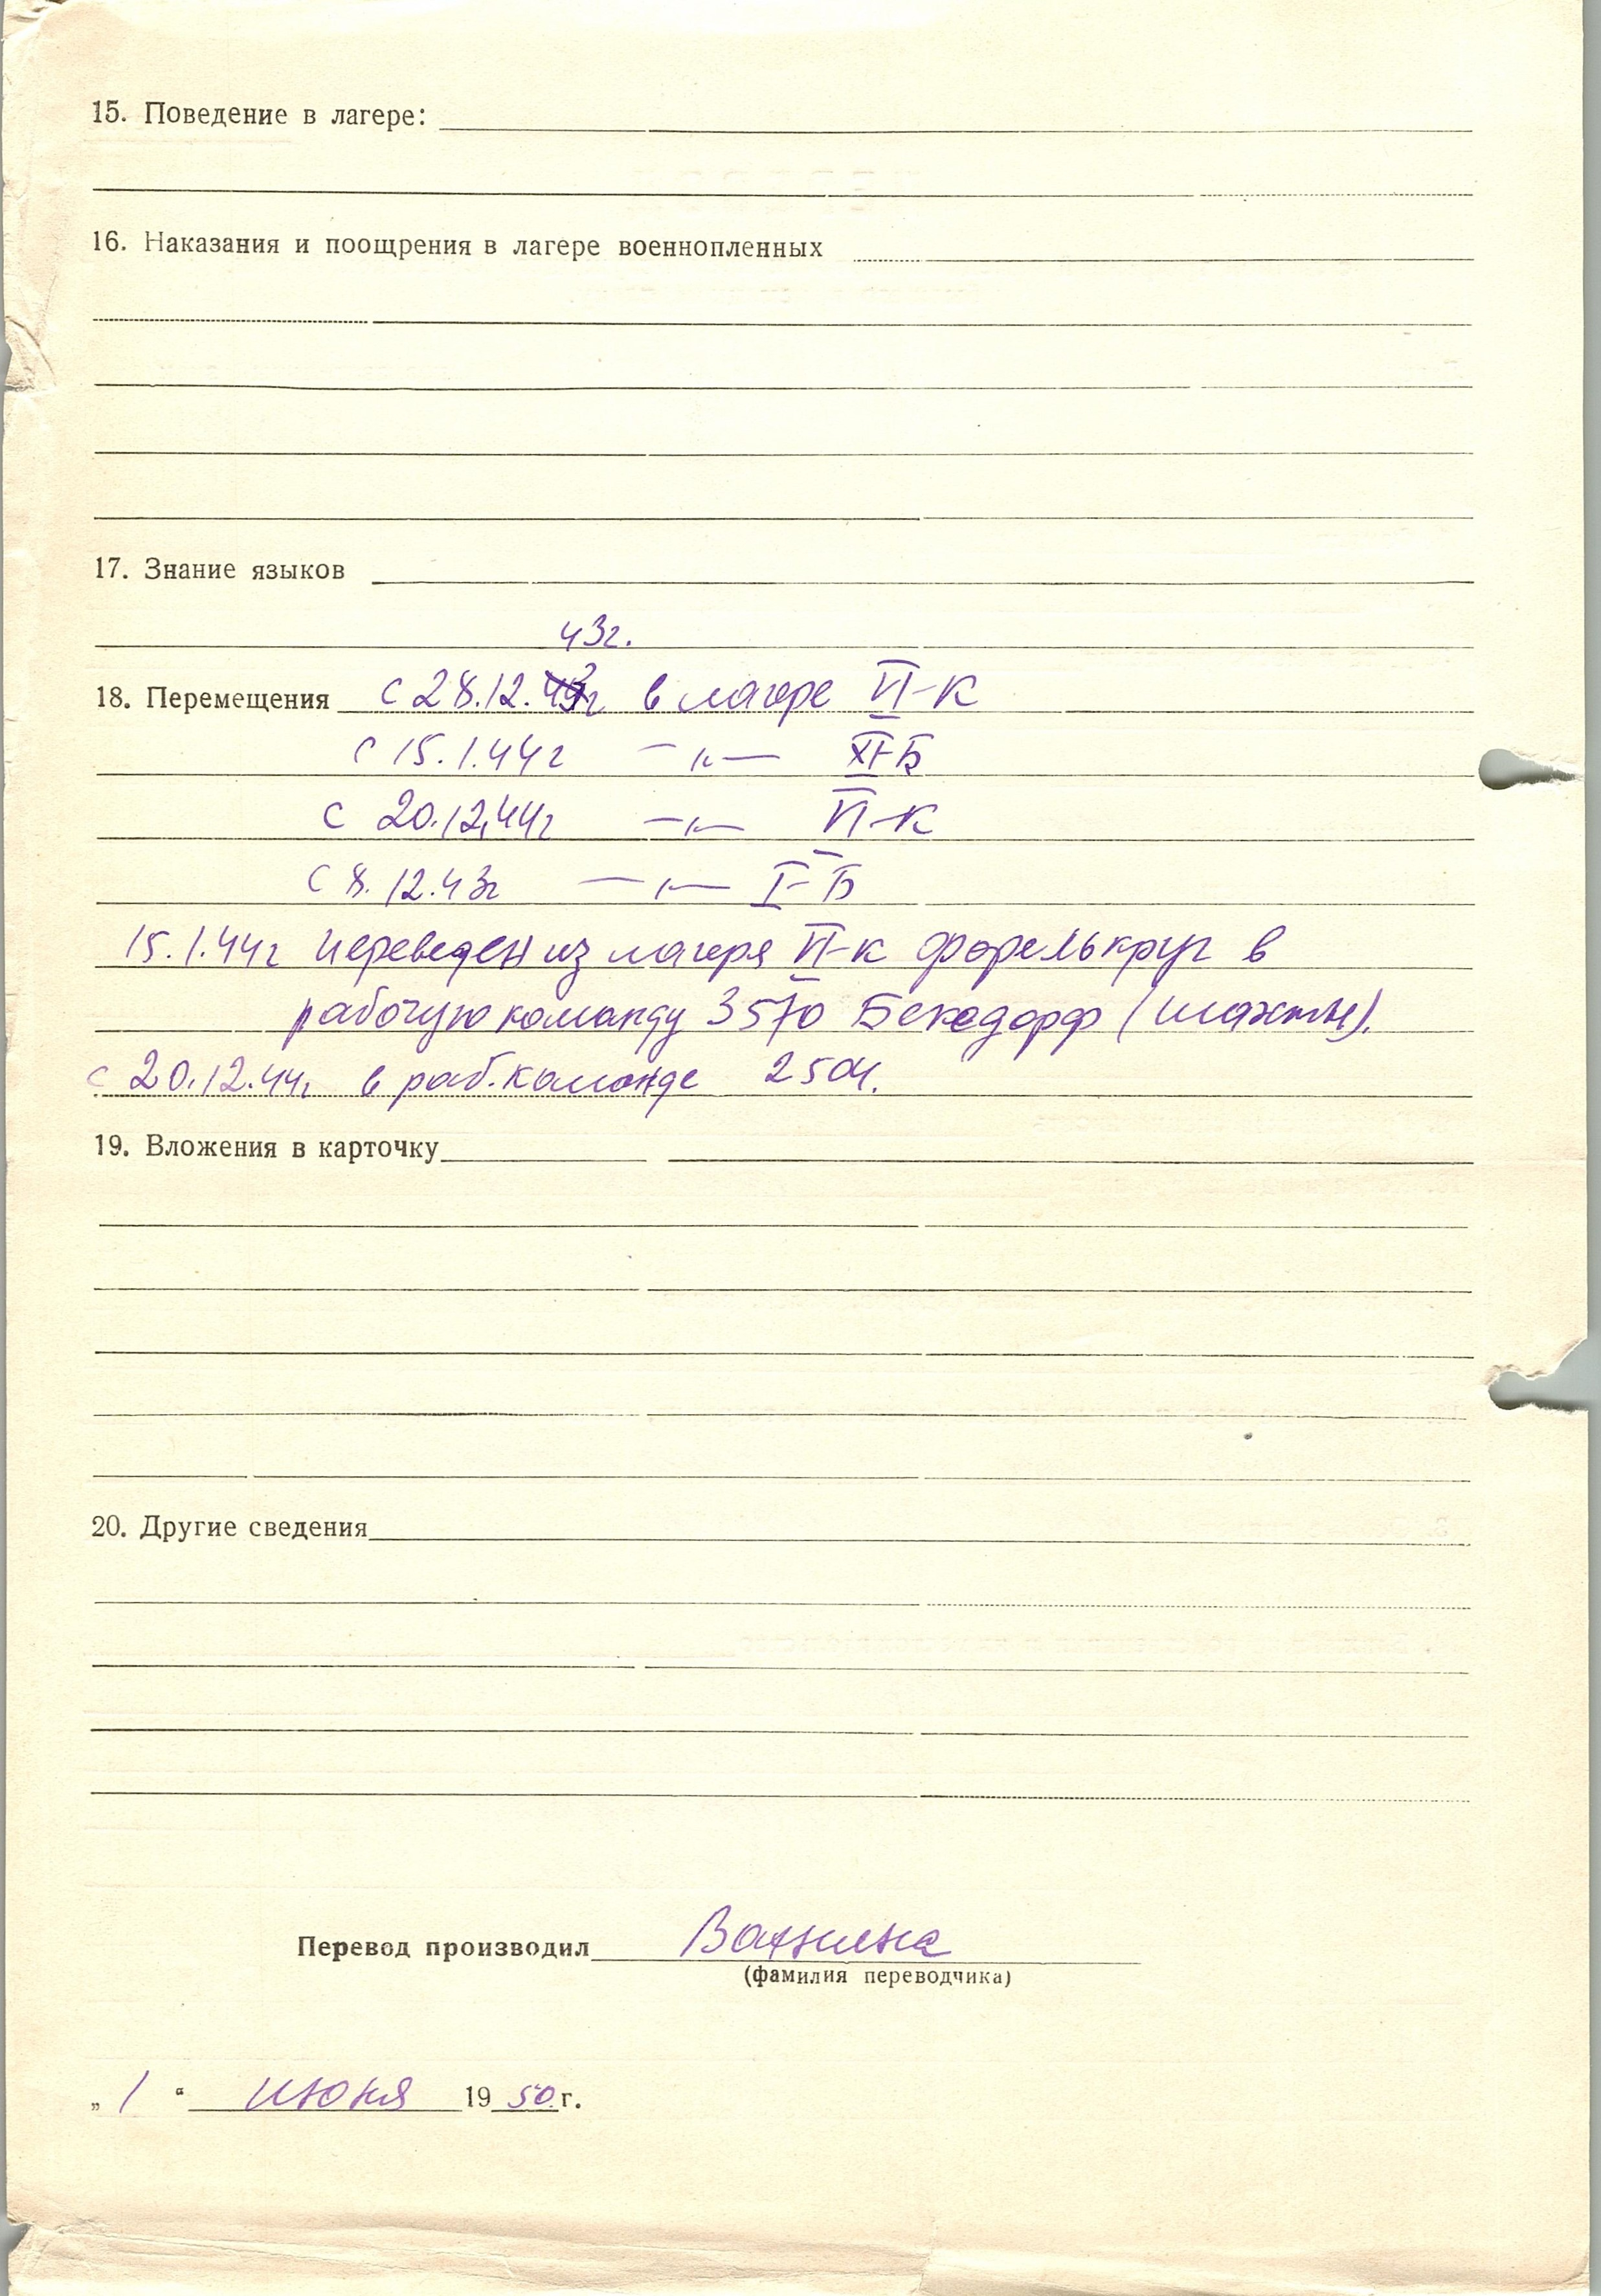 15. Поведение в лагере:
16. Наказания и поощрения в лагере военнопленных
17. Знание языков
43г.
18. Перемещения с 28.12. в лагере VI-К
с 15.1.44г —"— XI-Б
с 20.12.44г —"— VI-К
с 8.12.43г —"— I-Б
15.1.44г переведен из лагеря VI-К форелькруг в
рабочую команду 3570 Бекедорф (шахты).
с 20.12.44г в раб. команде 2504.
19. Вложения в карточку
20. Другие сведения
Перевод производил
(фамилия переводчика)
„ 1 “ июня 1950 г.